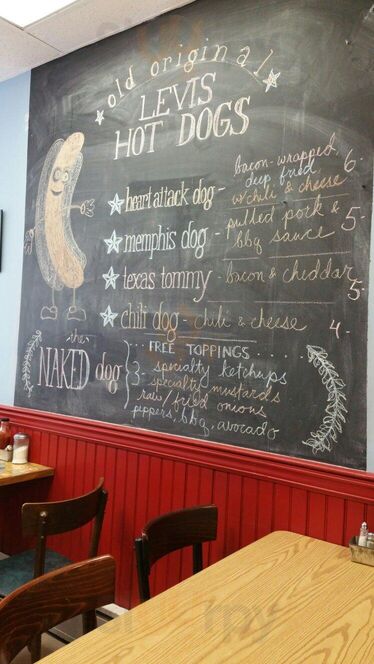 old original
LEVIS
HOT DOGS
heart attack dog - bacon-wrapped, 6-
deep fried
w/chili & cheese
memphis dog - pulled pork & 5-
bbq sauce
texas tommy - bacon & cheddar 5-
chili dog - chili & cheese 4-
the
NAKED dog
FREE TOPPINGS
3 - specialty ketchups
3 - specialty mustards
raw/fried onions
peppers, bbq, avocado